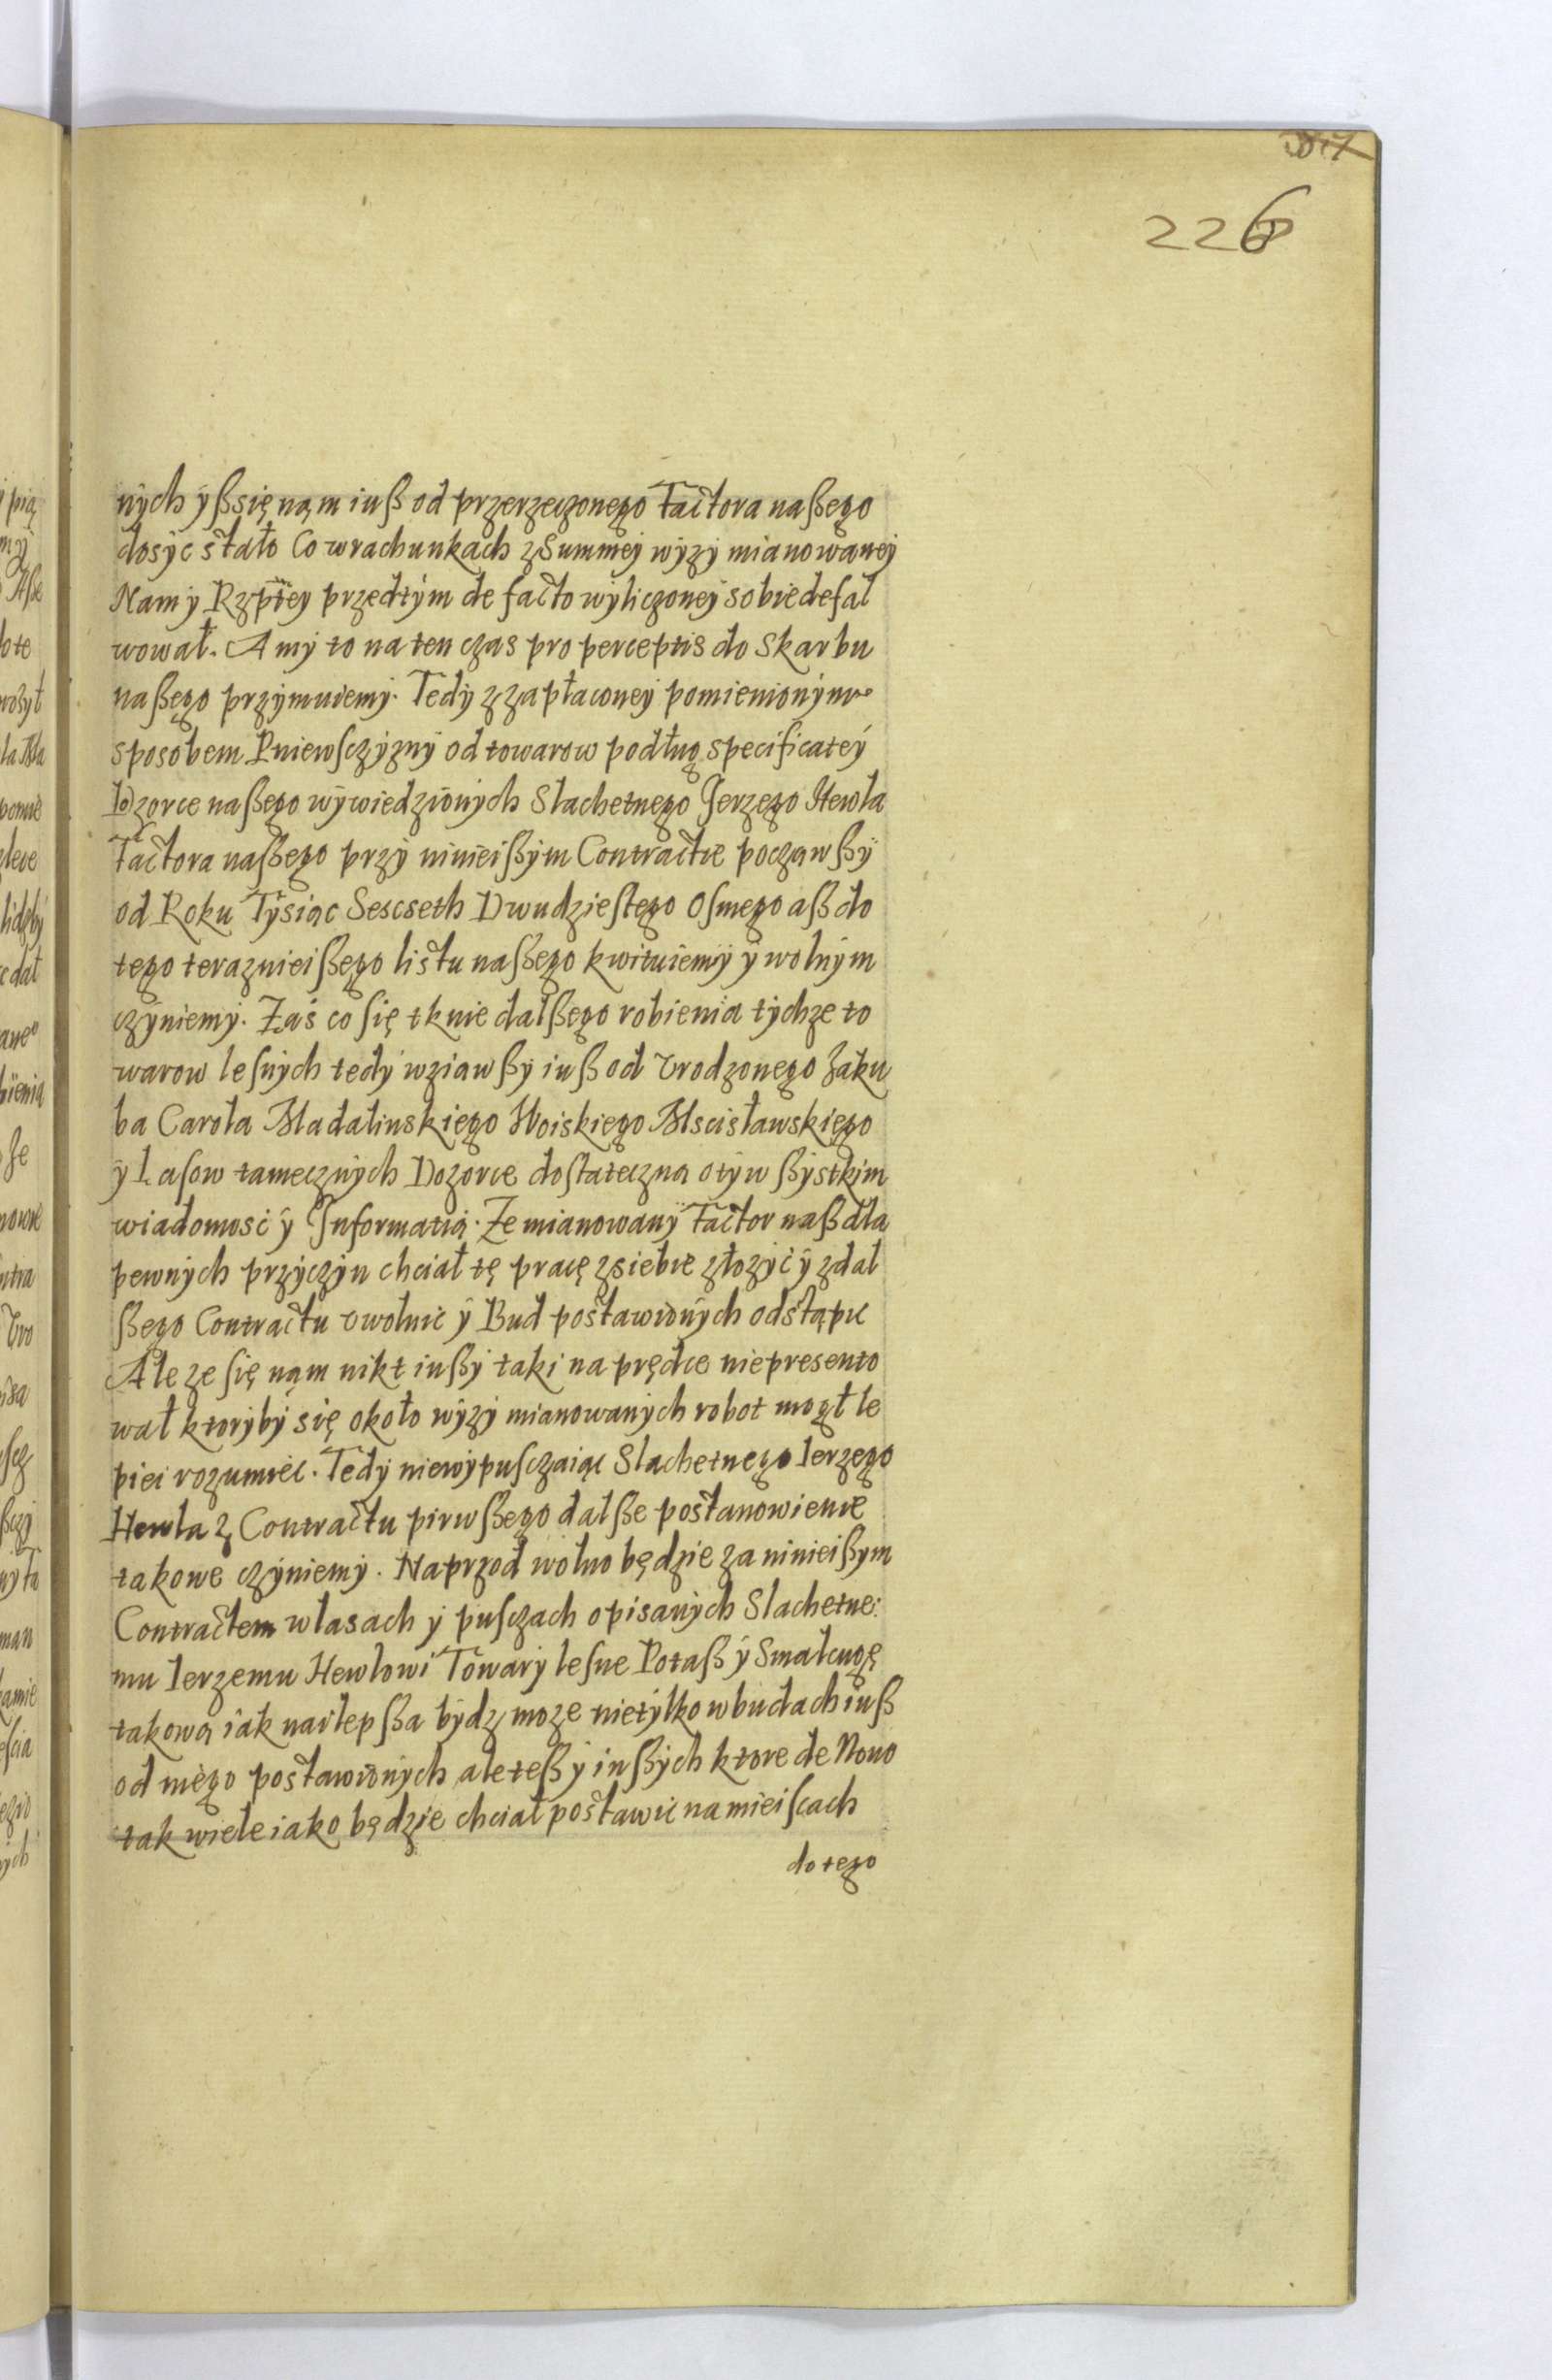 226
nÿch ÿ ßsię nąm iuß od przerzeczonego Factora naßego
dosÿc stało Co wrachunkach zSummeÿ wÿzÿ mianowaneÿ
Nam ÿ Rzptey przedtÿm de facto wÿliczoneÿ sobie defal
wował. A mÿ to na ten czas pro perceptis do Skarbu
naßego przÿmuiemÿ. Tedÿ z zapłaconeÿ pomienionÿm
sposobem Pniewsczÿznÿ od towarow podług specificateÿ
Dozorce naßego wÿwiedzionÿch Slachetnego Jerzego Hewla
Factora naßego przÿ ninieißÿm Contractie począwßÿ
od Roku Tÿsiąc Sescseth Dwudziestego Osmego aß do
tego teraznieißego listu naßego kwituiemÿ ÿ wolnÿm
czÿniemÿ. Zaś co się tknie dalßego robienia tÿchze to
warow lesnÿch tedÿ wziawßÿ iuß od Vrodzonego Jaku
ba Carola Madalinskiego Woiskiego Mscisławskiego
ÿ Lasow tamecznÿch Dozorce dostateczna otÿm wßÿstkim
wiadomosć ÿ Informatią. Ze mianowanÿ Factor naß dla
pewnÿch przÿczÿn chciał tę pracę zsiebie złozÿć ÿ zdal
ßego Contractu vwolnic ÿ Bud postawionÿch odstąpic
Ale ze się nąm nikt inßÿ taki na prędce niepresento
wał ktorÿbÿ się około wÿzÿ mianowanÿch robot mogł le
piei rozumiec. Tedÿ niewÿpusczaiąc Slachetnego Ierzego
Hewla z Contractu pirwßego dalße postanowienie
takowe czÿniemÿ. Naprzod wolno będzie za ninieißym
Contractem wlasach ÿ pusczach opisanÿch Slachetne
mu Ierzemu Hewlowi Towarÿ lesne Potaß ÿ Smalcugę
takową iak nailepßa bÿdz moze nietÿlko wbudach iuß
od niego postawionÿch ale teß ÿ inßÿch ktore de Nouo
tak wiele iako będzie chciał postawic na mieiscach
do tego